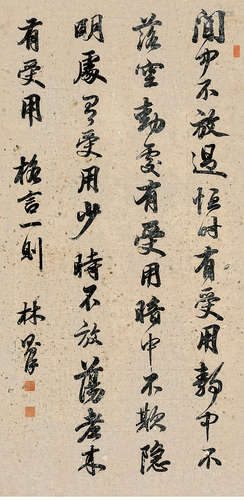 閒中不放過忙时有受用靜中不
落空動處有受用暗中不欺隐
明處有受用少時不放蕩老来
有受用 格言一則 林